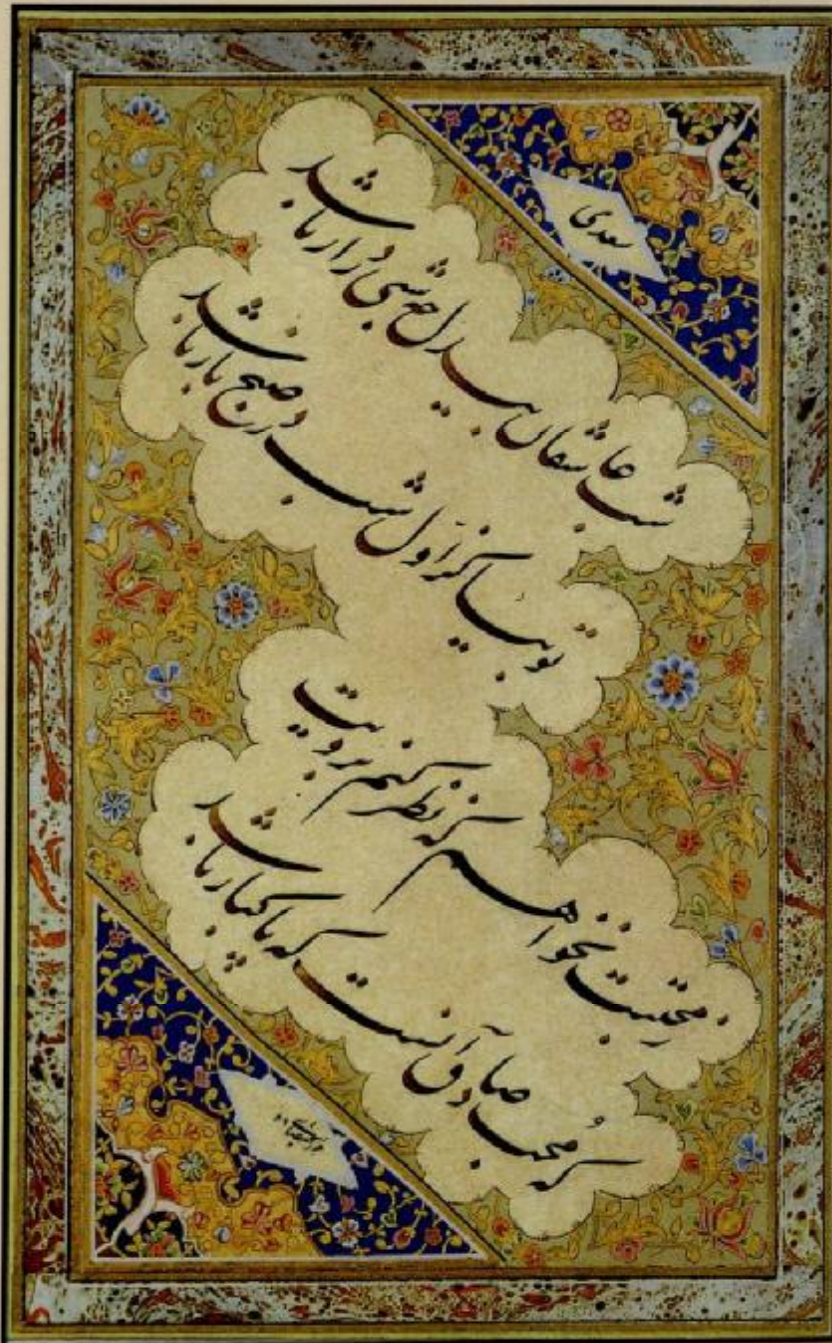 سعدی
شب عاشقان بیدل چه شبی دراز باشد
تو بیا کز اول شب در صبح باز باشد
ز محبتت نخواهم که نظر کنم برویت
که محب صادق آنست که پاکباز باشد